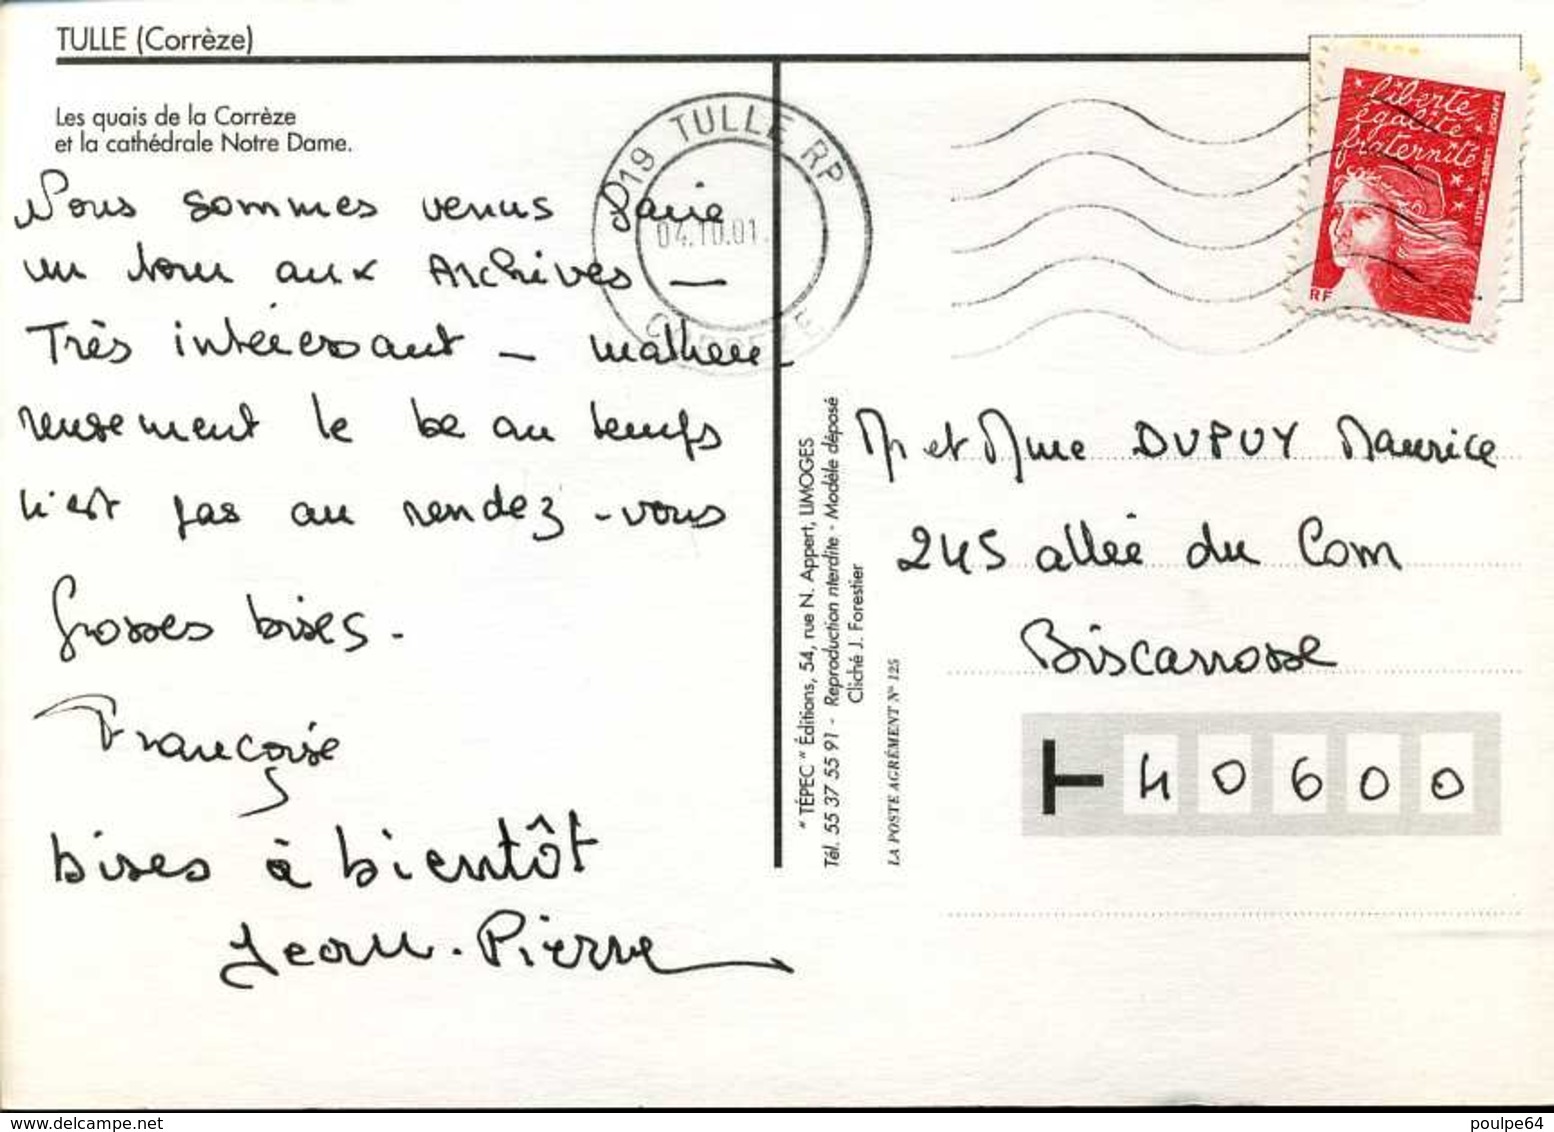 TULLE (Corrèze)
Les quais de la Corrèze
et la cathédrale Notre Dame.
Nous sommes venus faire
un tour aux Archives —
Très intéressant — malheu-
reusement le beau temps
n'est pas au rendez-vous
Grosses bises.
Françoise
bises à bientôt
Jean-Pierre
19 TULLE RP
04.10.01
CORREZE
liberté
égalité
fraternité
RF
LA POSTE
"TÉPEC" Éditions, 54, rue N. Appert, LIMOGES
Tél. 55 37 55 91 - Reproduction interdite - Modèle déposé
Cliché J. Forestier
LA POSTE AGRÉMENT N° 125
Mr et Mme DUPUY Maurice
245 allée du Com
Biscarrosse
40600
poulpe64